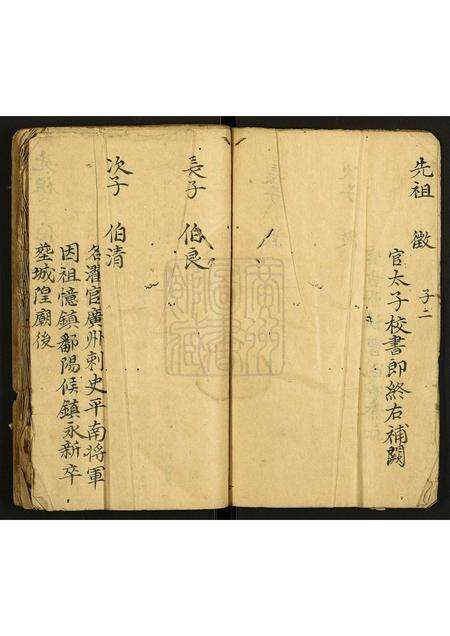 先祖 徵 子二
官太子校書即終右補闕
長子 伯良
次子 伯清
名濯官廣州刺史平南将軍
因祖憶鎮鄱陽侯鎮永新卒
塟城隍廟後